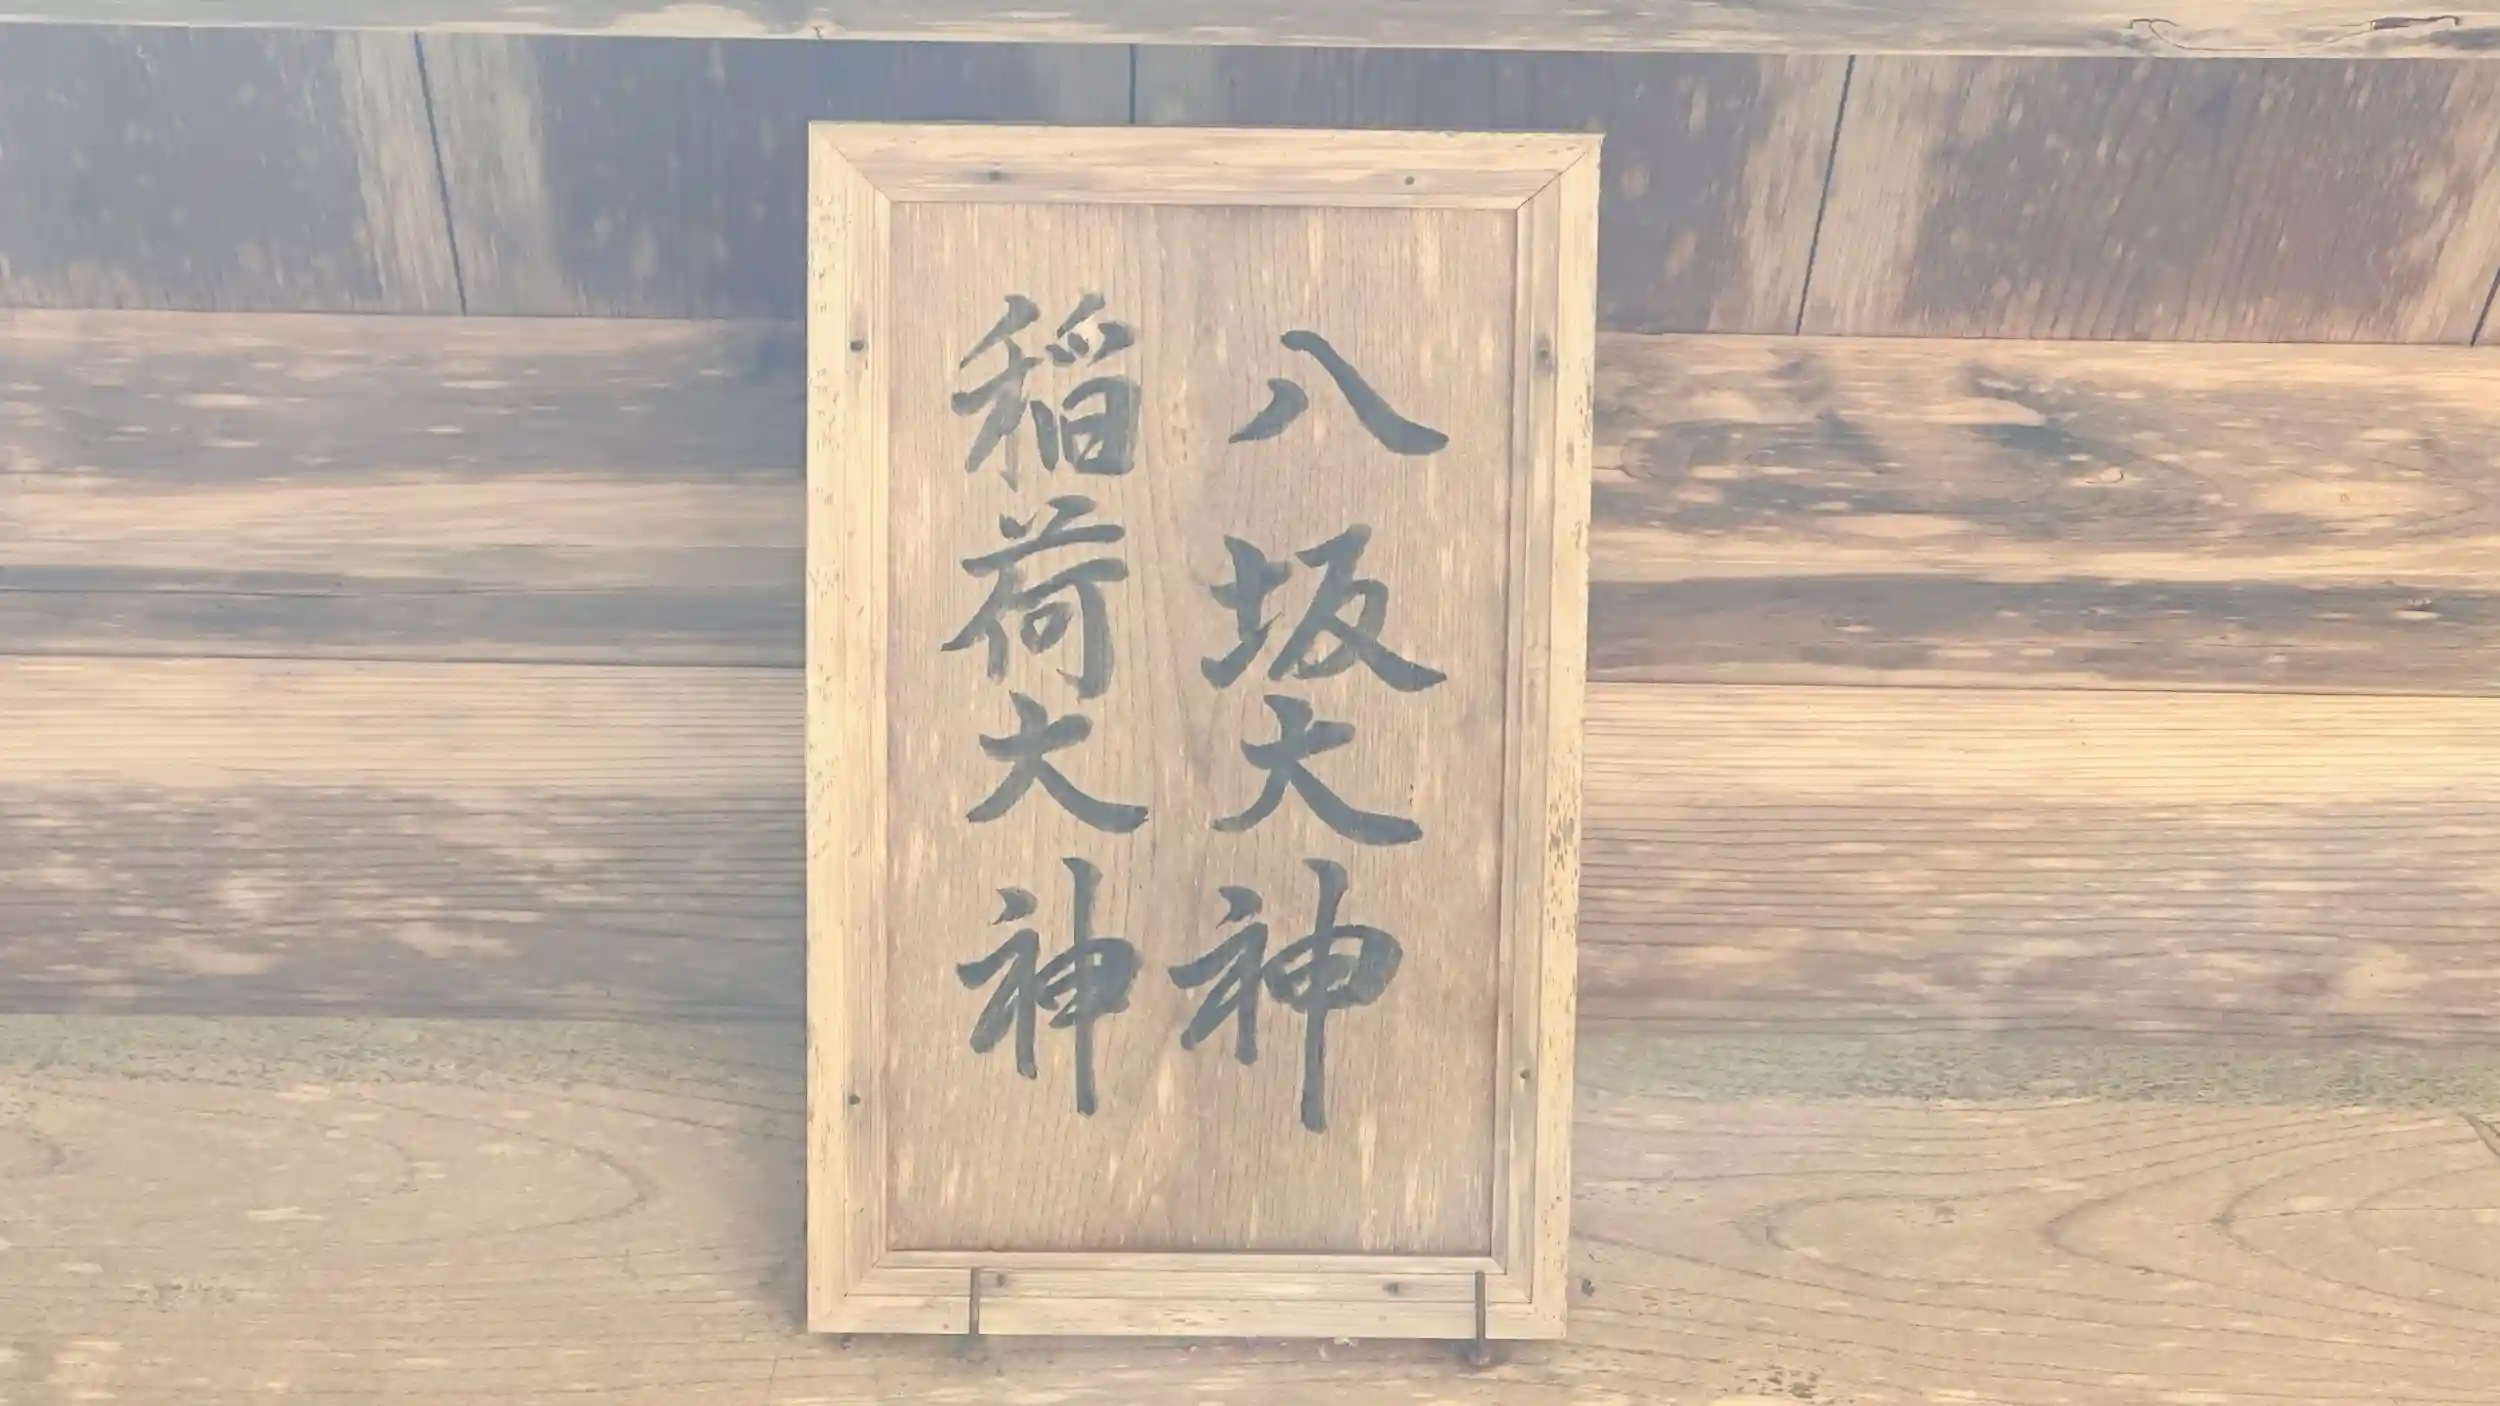 八坂大神
稲荷大神